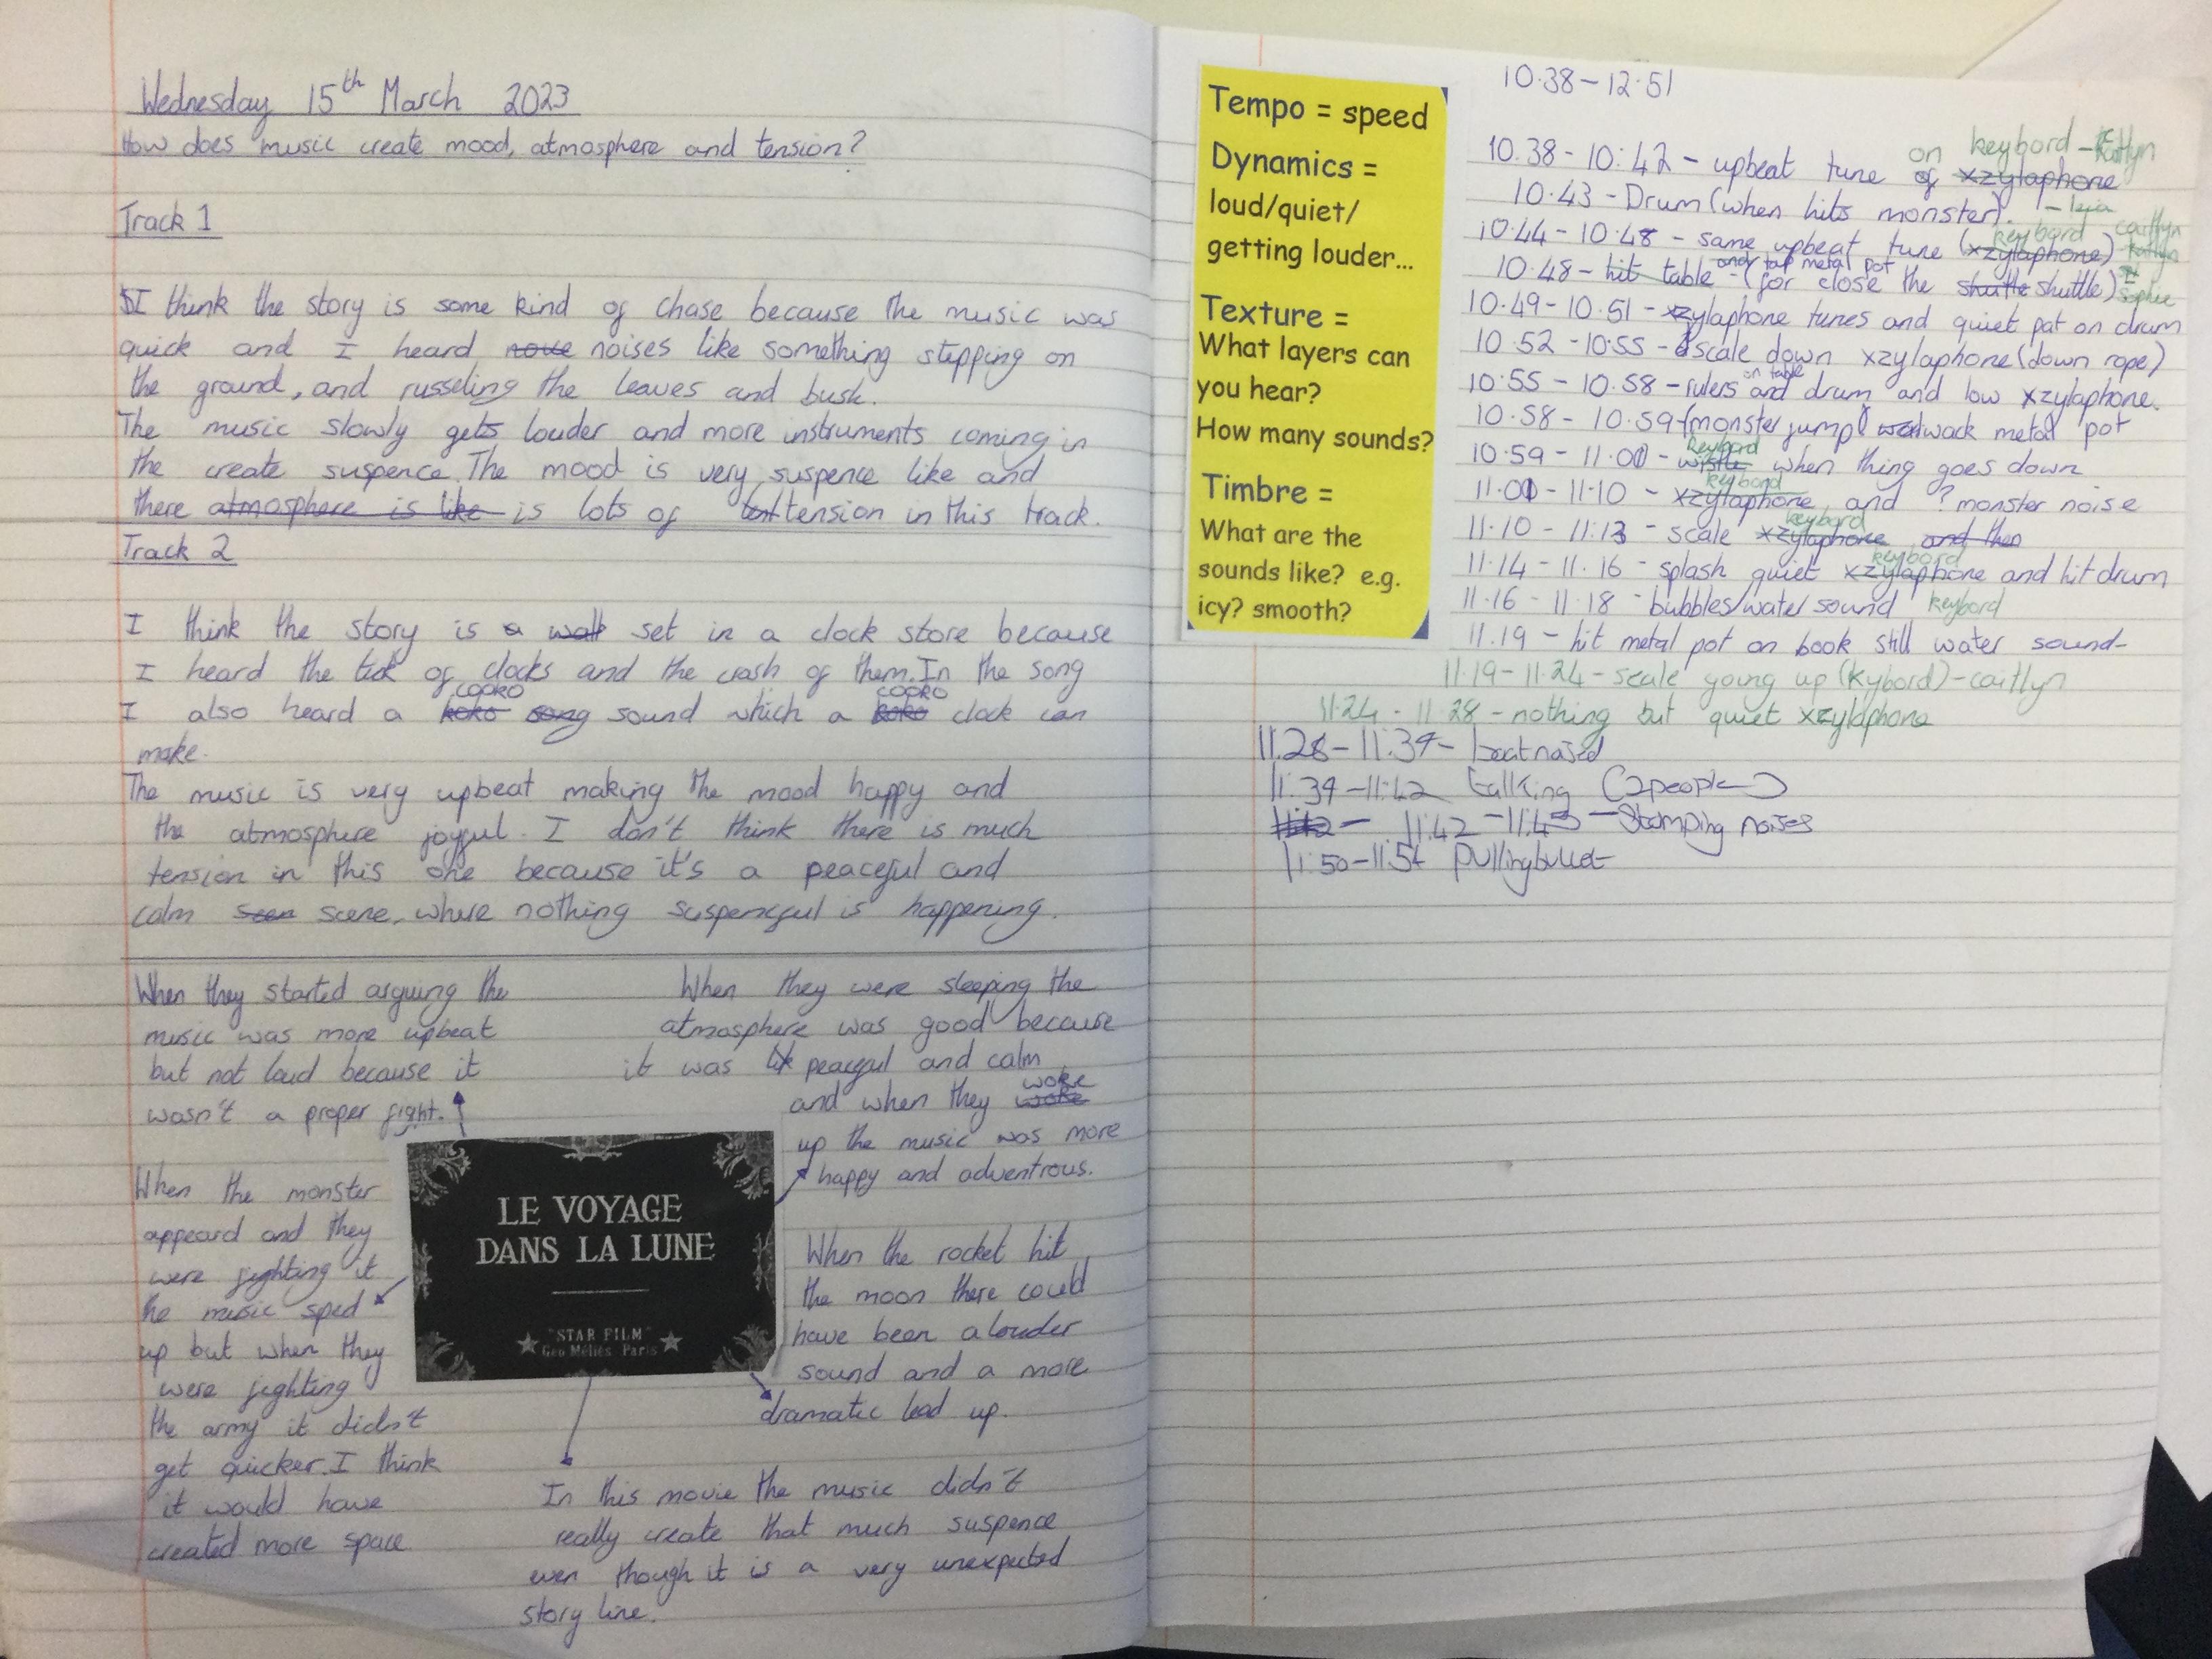 Wednesday 15th March 2023
How does music create mood, atmosphere and tension?
Track 1
I think the story is some kind of chase because the music was
quick and I heard noises like something stepping on
the ground, and russeling the leaves and bush.
The music slowly gets louder and more instruments coming in
the create suspence. The mood is very suspence like and
there atmosphere is like is lots of tension in this track.
Track 2
I think the story is a walk set in a clock store because
I heard the tick of clocks and the crash of them. In the song
cooko cooko
I also heard a koko song sound which a koko clock can
make.
The music is very upbeat making the mood happy and
the atmosphere joyful. I don't think there is much
tension in this one because it's a peaceful and
calm seen scene, where nothing suspenseful is happening.
When they started arguing the
music was more upbeat
but not loud because it
wasn't a proper fight.
When they were sleeping the
atmosphere was good because
it was peaceful and calm
woke
and when they woke
up the music was more
happy and adventrous.
When the monster
appeard and they
were fighting it
he music sped
up but when they
were fighting
the army it didn't
get quicker. I think
it would have
created more space.
LE VOYAGE
DANS LA LUNE
"STAR FILM"
Geo Méliès Paris
When the rocket hit
the moon there could
have been a louder
sound and a more
dramatic lead up.
In this movie the music didn't
really create that much suspence
even though it is a very unexpected
story line.
Tempo = speed
Dynamics =
loud/quiet/
getting louder...
Texture =
What layers can
you hear?
How many sounds?
Timbre =
What are the
sounds like? e.g.
icy? smooth?
10.38-12.51
on keybord - kaitlyn
10.38-10:42 - upbeat tune of xzylaphone
10.43 - Drum (when hits monster).
keybord caitlyn
10.44-10.48 - same upbeat tune (xzylaphone) kaitlyn
and tap metal pot
10.48 - hit table - (for close the shuttle shuttle) sophie
10.49-10.51 - xzylaphone tunes and quiet pat on drum
10.52-10.55 - scale down xzylaphone (down rope)
on table
10:55-10.58 - rulers and drum and low xzylaphone.
10.58-10.59 - (monster jump) wack metal pot
keybord
10.59-11.00 - wistle when thing goes down
keybord
11.00-11.10 - xzylaphone and ? monster noise
keybord
11.10-11.13 - scale xzylaphone and then
keybord
11.14-11.16 - splash quiet xzylaphone and hit drum
11.16-11.18 - bubbles/water sound keybord
11.19 - hit metal pot on book still water sound-
11.19-11.24 - scale going up (kybord) - caitlyn
11.24-11.28 - nothing but quiet xzylaphone
11.28-11.39-
11:39-11:42 talking (2people)
11:42- 11:42-11:45 - Stomping noises
11:50-11:54 pulling bullet